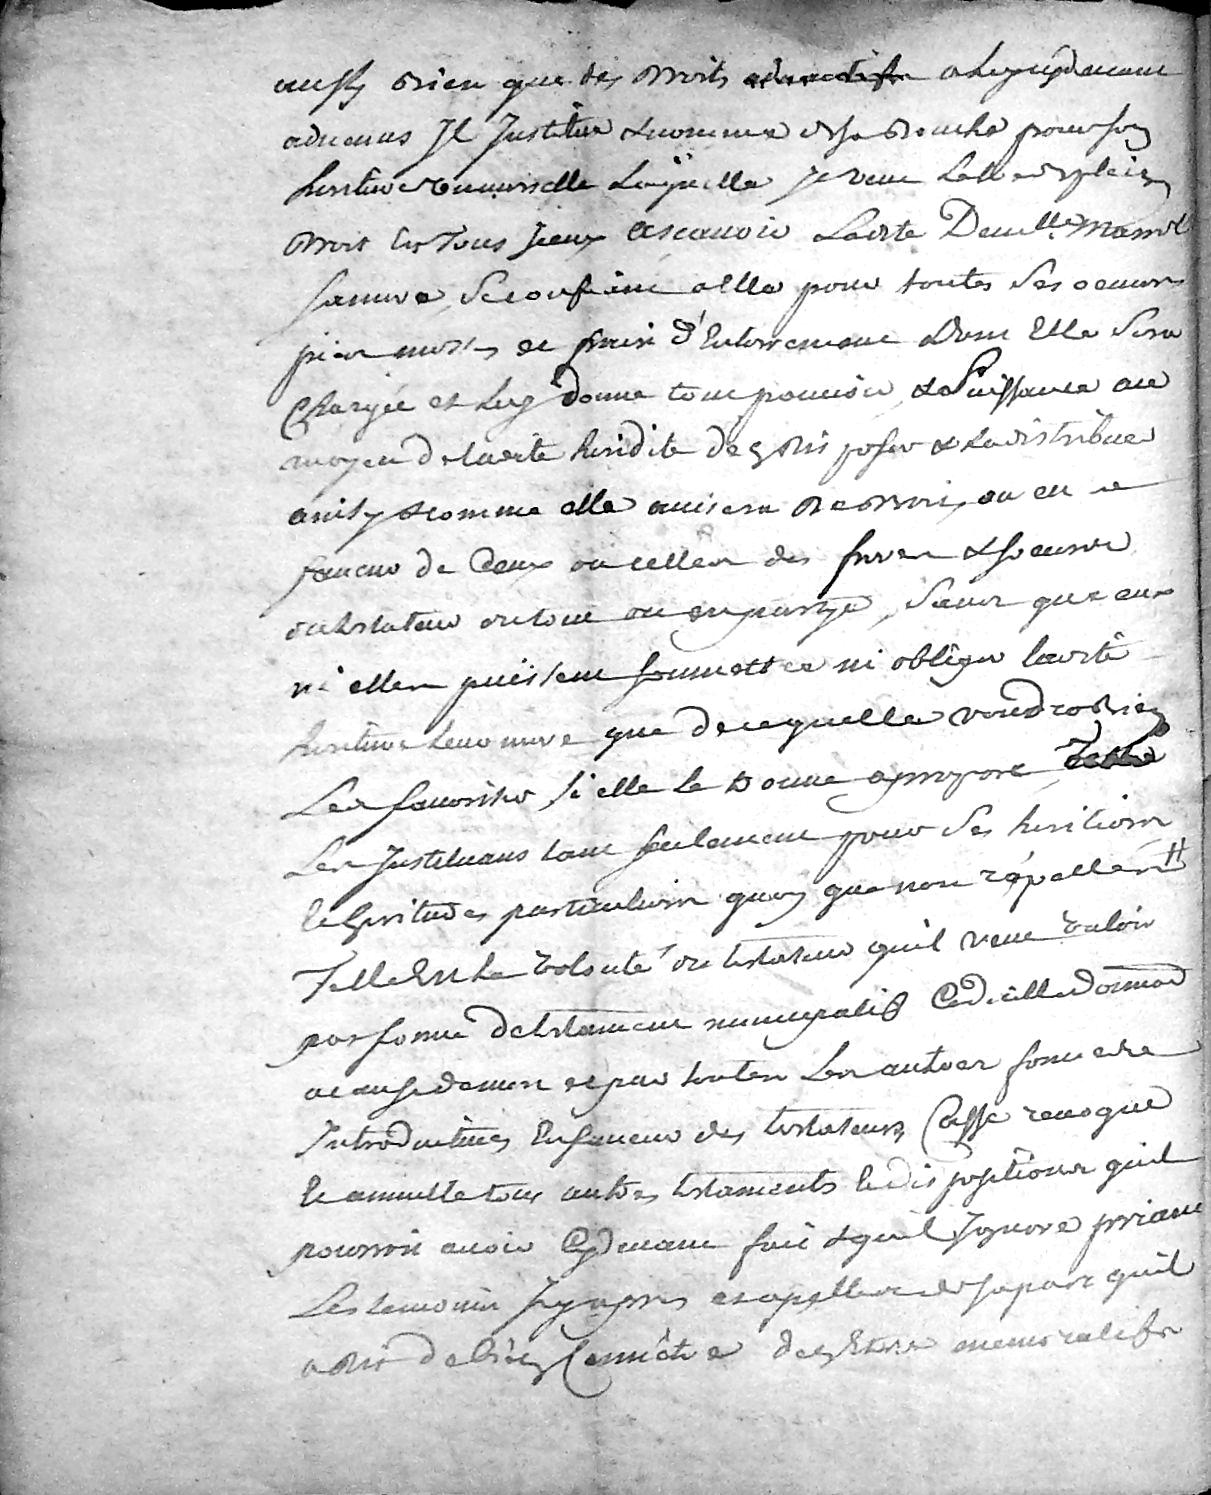 aussy bien que des droits a luy cy devant
advenus Jl Justitue & nomme de sa bouche pour son
heritiere universelle laquelle Je veux de plein
droit en tous Jceux ascavoir Ladite Dem.lle
femme se confiant a elle pour toutes ses oeuvres
pies messes et frais d'Enterrement dont Elle sera
Chargée et luy donne tout pouvoir & Puissance au
moyen de ladite heridite de disposer & la distribuer
ainsy & comme elle avisera ou en
faveur de Ceux ou celles des freres & soeurs
du testateur du tout ou en partye, sans que eux
ni elles puissent soumettre ni obliger ladite
heritiere que de ce quelle voudra bien
Les favoriser si elle le trouve a propos
Les Justituans tant seulement pour ses heritiers
et heritieres particuliers quoy que non répellés #
Telle Est la volonté du testateur quil veut valoir
par forme de testament nuncupatif Codicille donnaon
a cause de mort et par toutes Les autres formes de
Introduittes En faveur des testateurs Casse revoque
et annulle tous autres testaments et dispositions quil
pourroit avoir Cy devant fait & quil Jgnore priant
Les temoins Jcy apres et apelles de sa part quil
a dit de bien Connoître den Etre memoratifs